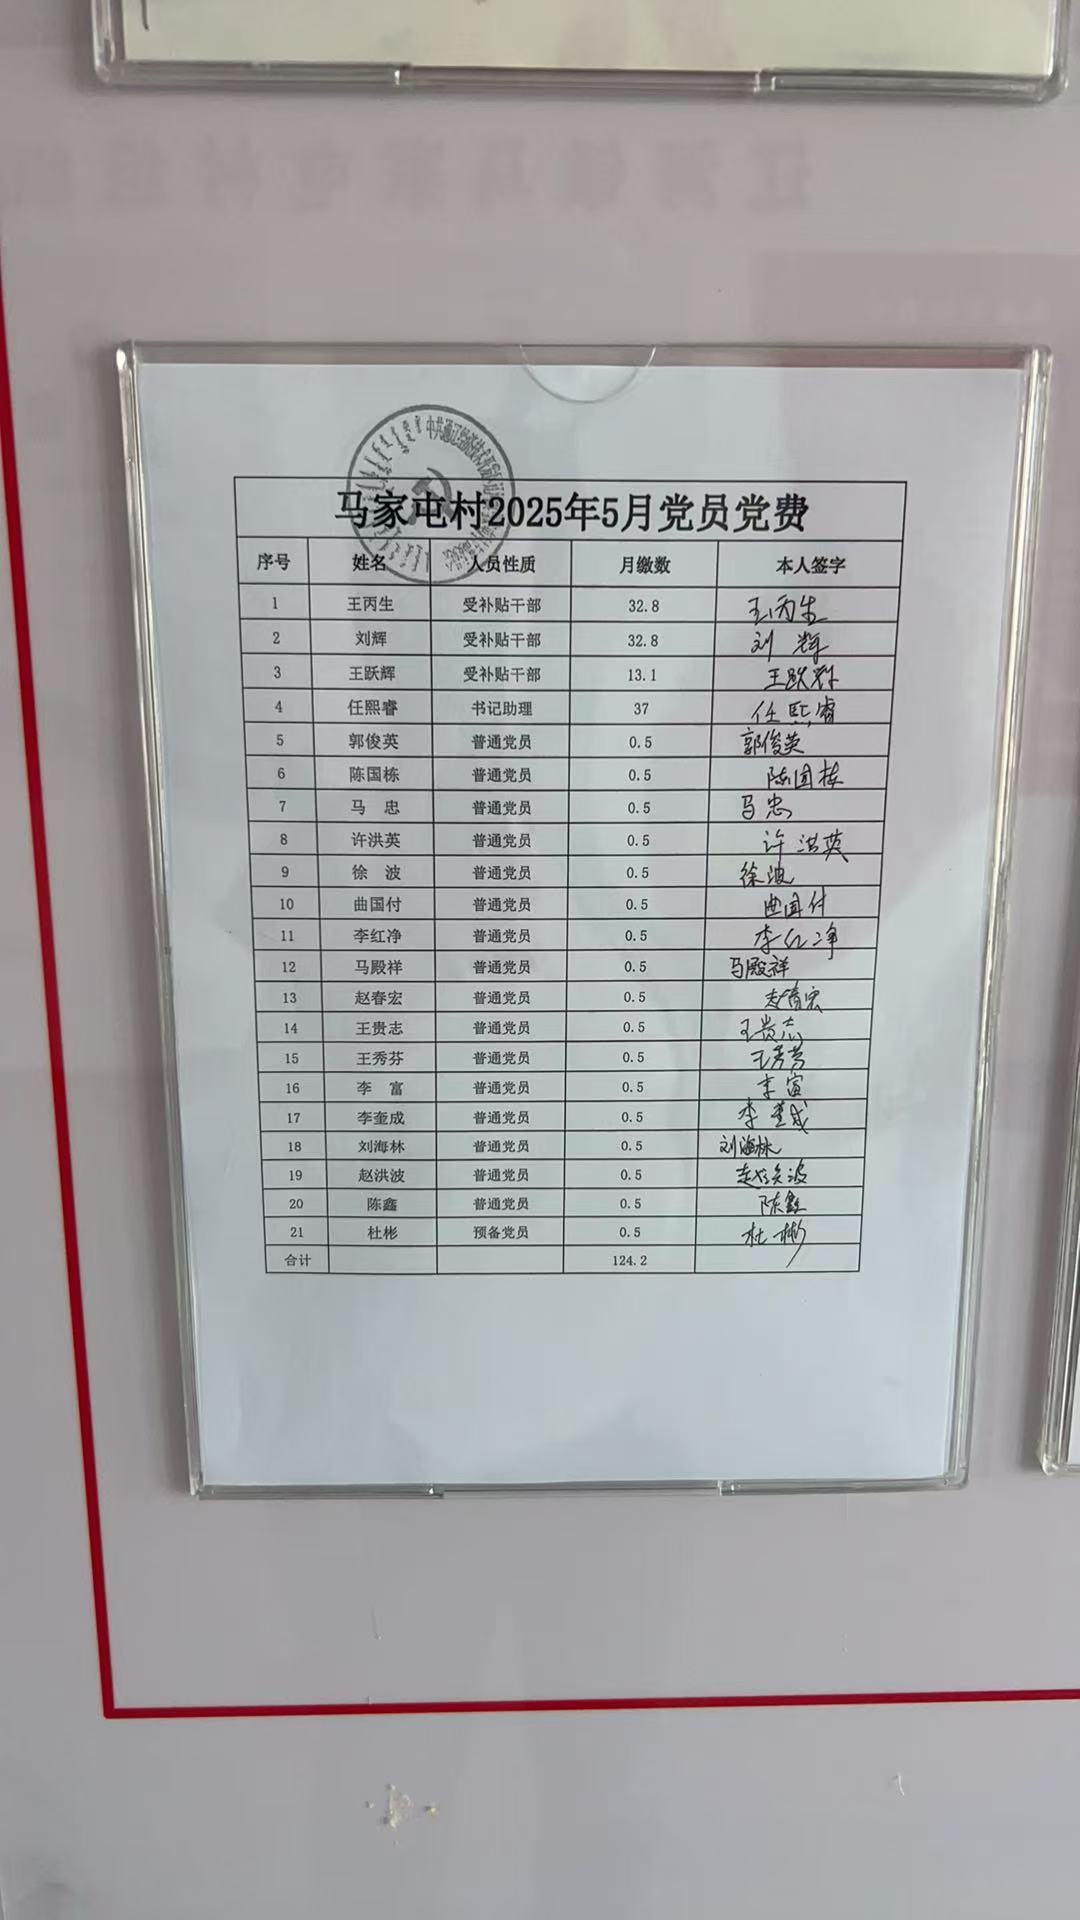 马家屯村2025年5月党员党费
序号 姓名 人员性质 月缴数 本人签字
1 王丙生 受补贴干部 32.8 王丙生
2 刘辉 受补贴干部 32.8 刘辉
3 王跃辉 受补贴干部 13.1 王跃辉
4 任熙睿 书记助理 37 任熙睿
5 郭俊英 普通党员 0.5 郭俊英
6 陈国栋 普通党员 0.5 陈国栋
7 马 忠 普通党员 0.5 马忠
8 许洪英 普通党员 0.5 许洪英
9 徐 波 普通党员 0.5 徐波
10 曲国付 普通党员 0.5 曲国付
11 李红净 普通党员 0.5 李红净
12 马殿祥 普通党员 0.5 马殿祥
13 赵春宏 普通党员 0.5 赵春宏
14 王贵志 普通党员 0.5 王贵志
15 王秀芬 普通党员 0.5 王秀芬
16 李 富 普通党员 0.5 李富
17 李奎成 普通党员 0.5 李奎成
18 刘海林 普通党员 0.5 刘海林
19 赵洪波 普通党员 0.5 赵洪波
20 陈鑫 普通党员 0.5 陈鑫
21 杜彬 预备党员 0.5 杜彬
合计 124.2